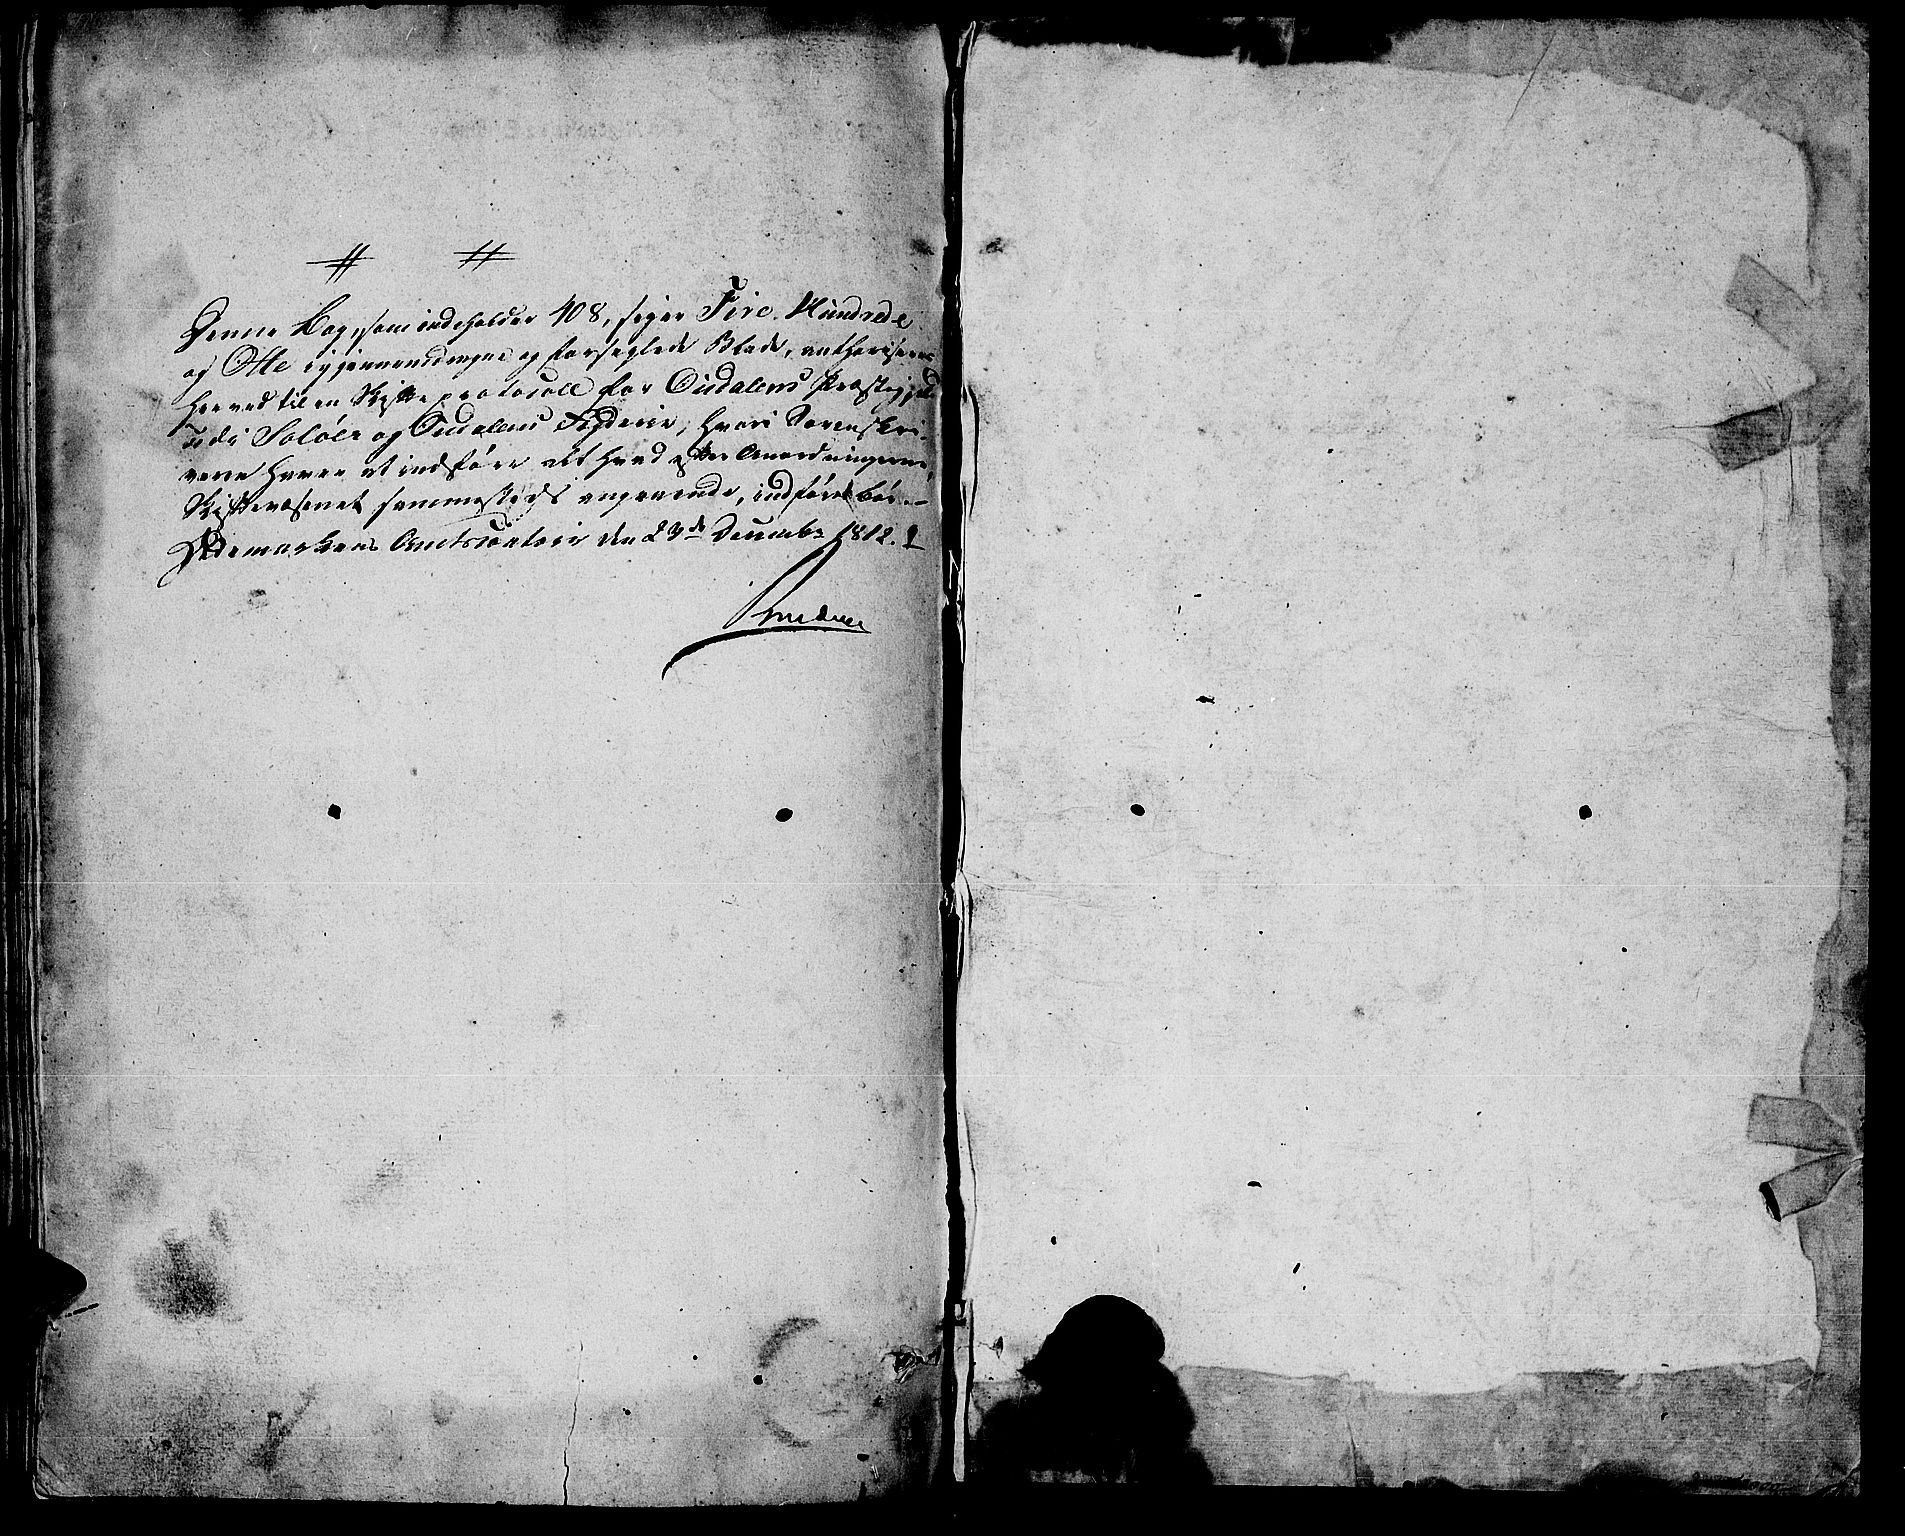 Denne Bog, som indeholder 408, siger Fire Hundrede
og Otte igjennemdragne og forseglede Blade, authoriseres
herved til en Skifteprotocoll for Oudalens Præstegjeld
udi Soløer og Oudalens Fogderie, hvori Sorenskri-
veren haver at indføre alt hvad efter Anordningerne,
Skiftevæsenet sammesteds angaaende, indføres bør.
Hedemarkens Amtscontoir den 23de Decembr 1812.